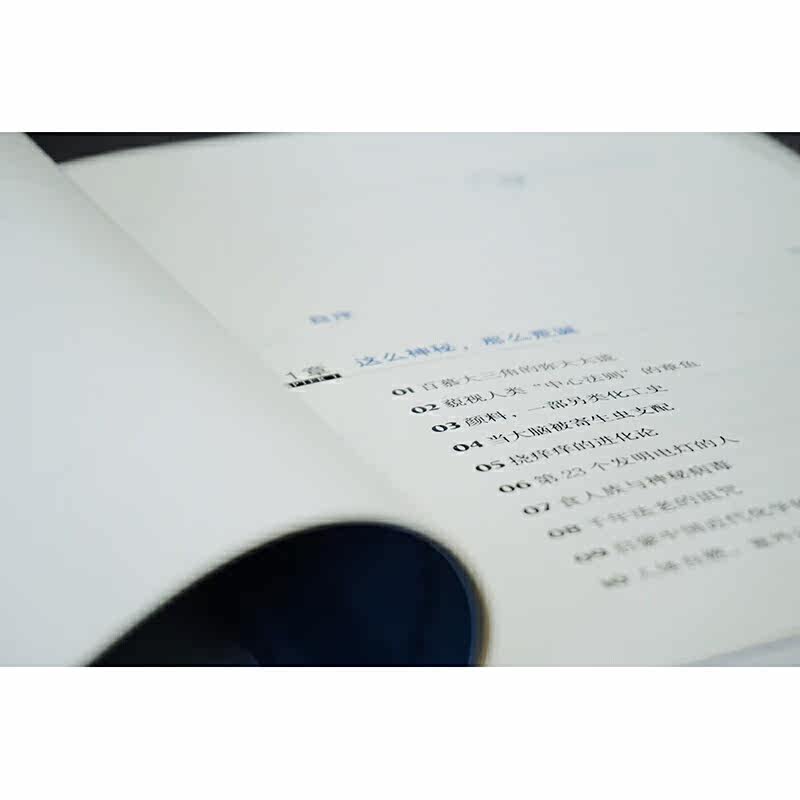 自序
1章 这么神秘，那么荒诞
01 百慕大三角的弥天大谎
02 藐视人类“中心法则”的章鱼
03 颜料，一部另类化工史
04 当大脑被寄生虫支配
05 挠痒痒的进化论
06 第23个发明电灯的人
07 食人族与神秘病毒
08 千年法老的诅咒
09 启蒙中国近代化学的
10